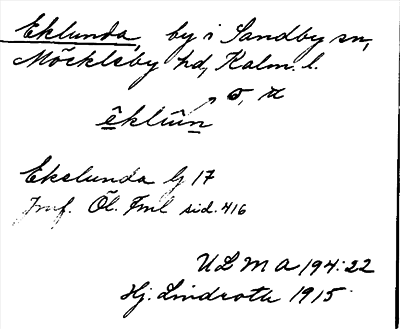 Eklunda, by i Sandby sn,
Möckleby hd, Kalm. l.
σ, π
êklûn
Ekelunda G 17
Jmf. Öl. Fml sid. 416
ULMA 194:22
Hj. Lindroth 1915